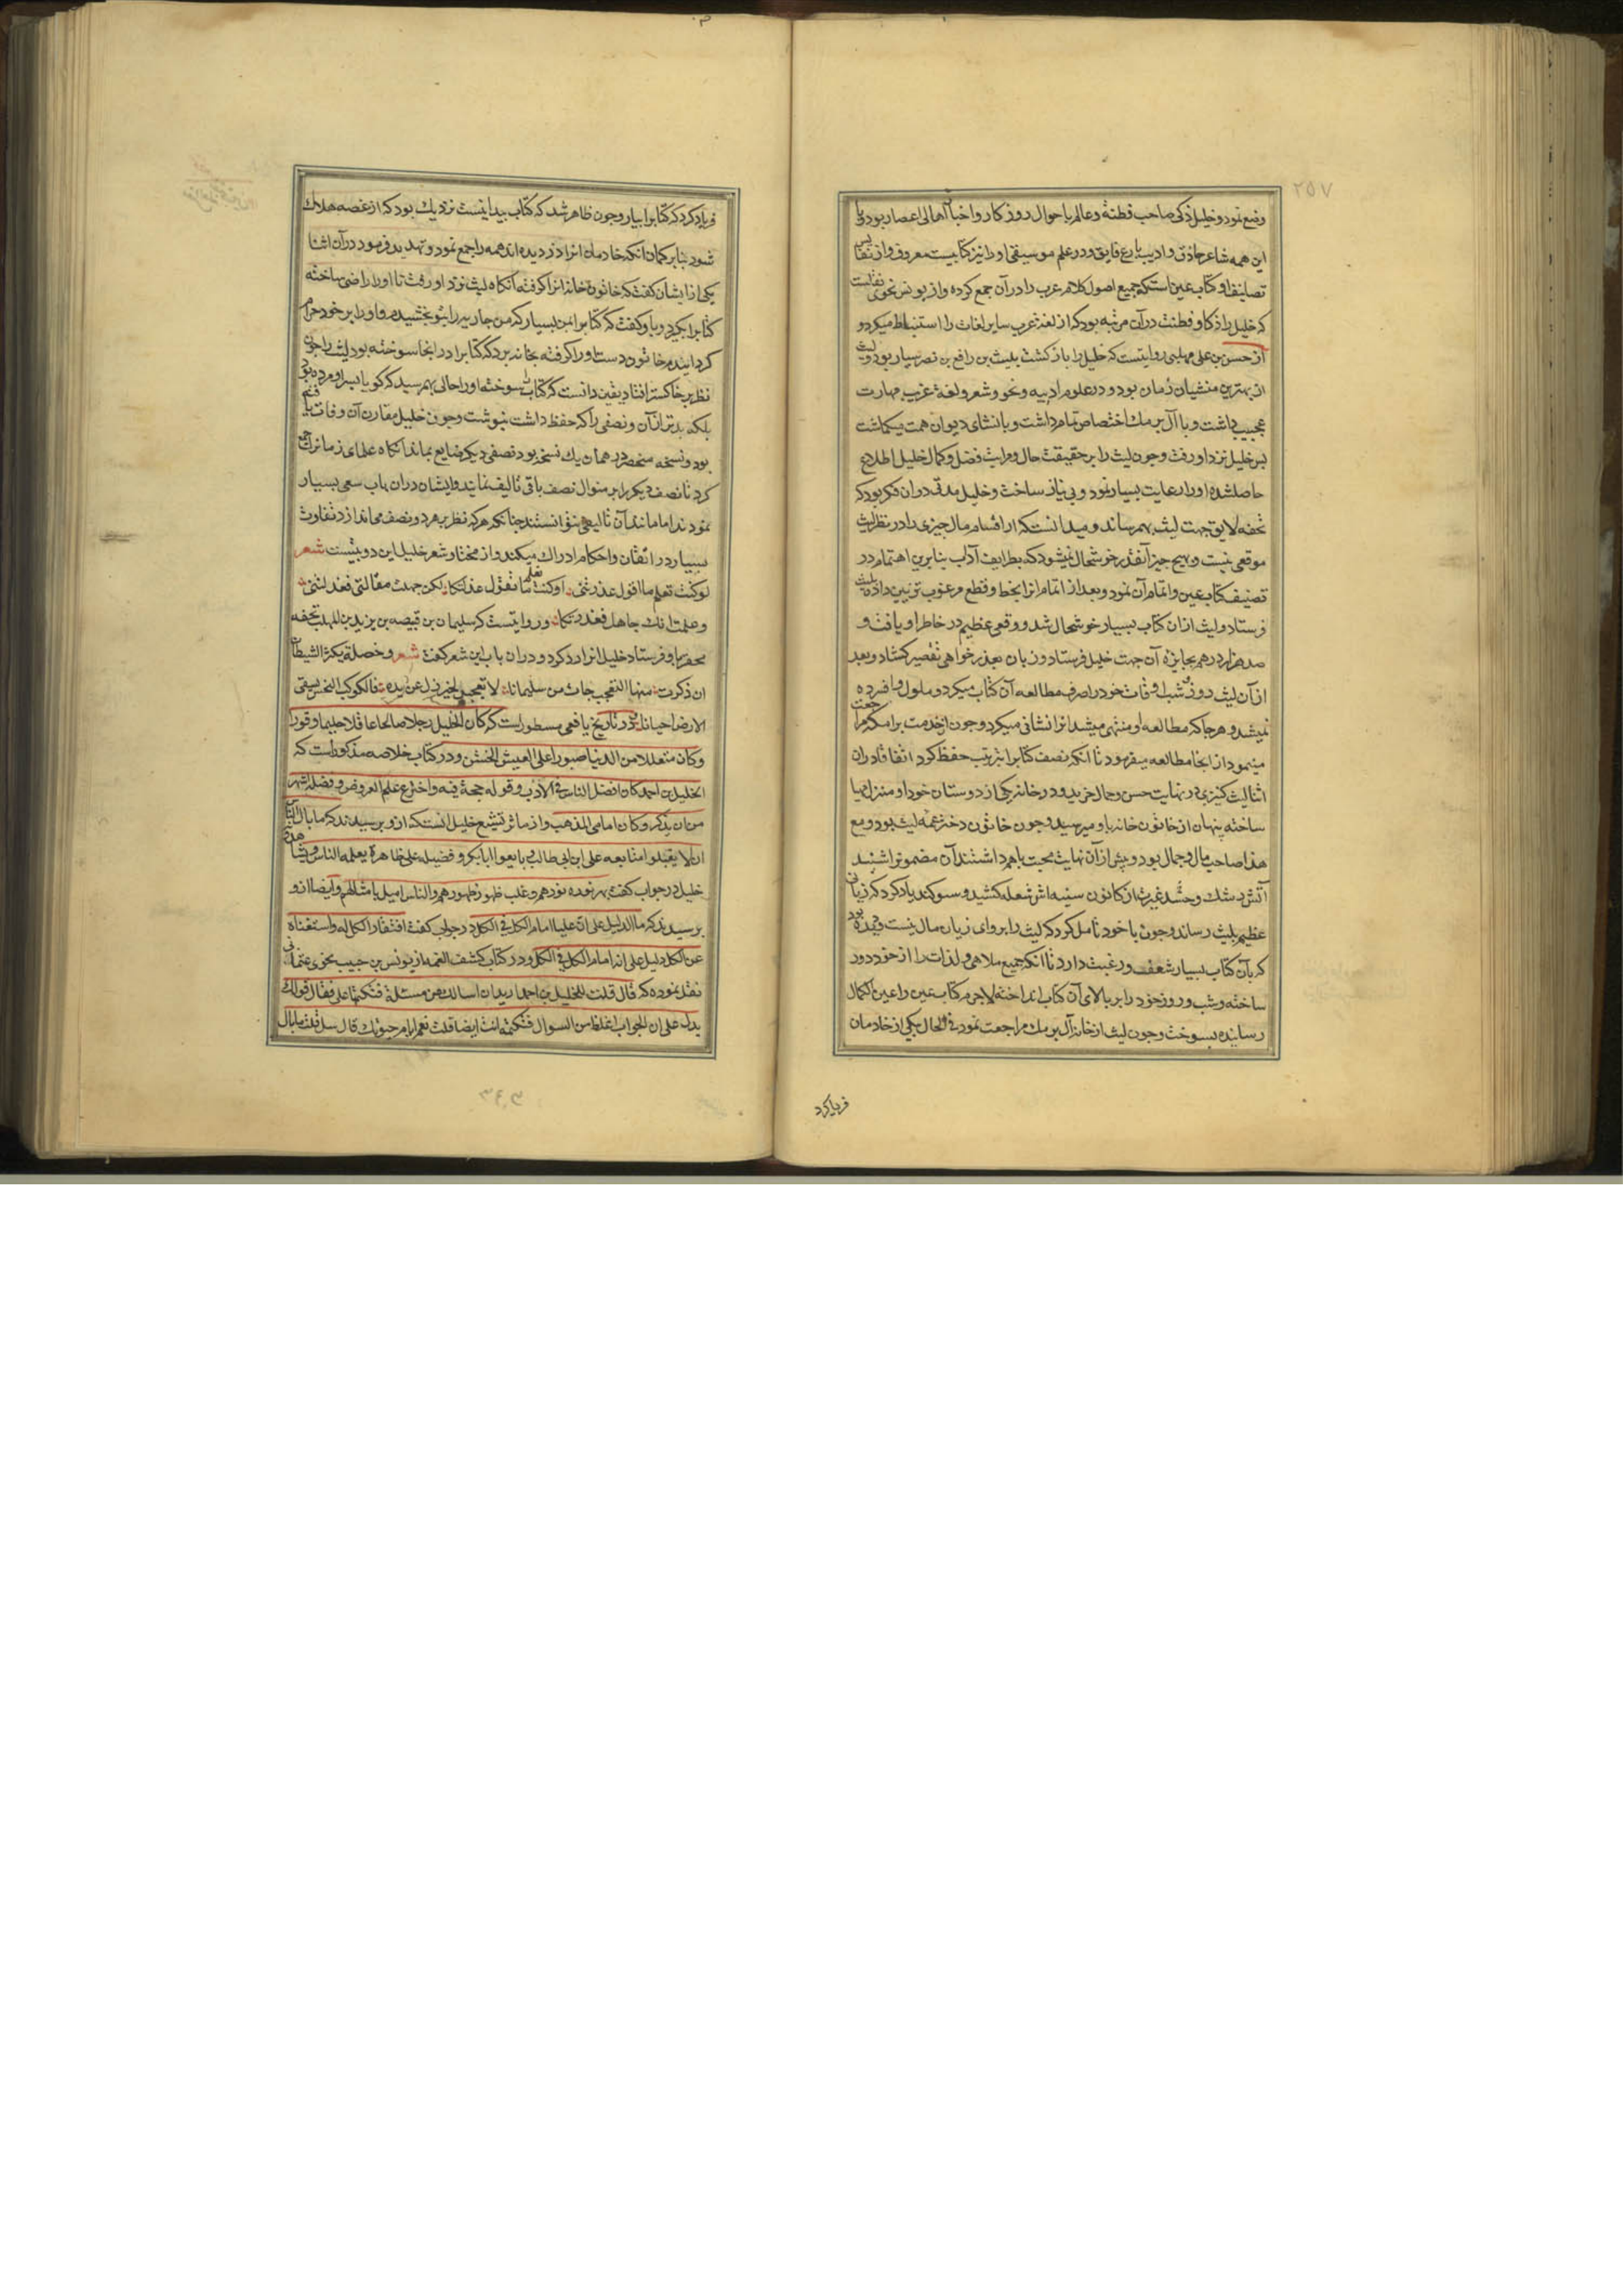 ۲۵۷
وضع نمود و خلیل ذکی صاحب فطنة و عالم باحوال روزکار و اخبار اهالی اعصار بود و با
این همه شاعر حاذق و ادیب بارع فایق و در علم موسیقی او را نیز کتابیست معروف و از نفایس
تصانیف او کتاب عین استکه جمیع اصول کلام عرب را در آن جمع کرده و از یونس نحوی نقلست
که خلیل را ذکا و فطنت در آن مرتبه بود که از لغة عرب سایر لغات را استنباط میکرد و
از حسن بن علی مهلبی روایتست که خلیل را بازکشت بلیث بن رافع بن نصر سیار بود و لیث
از بهترین منشیان زمان بود و در علوم ادبیه و نحو و شعر و لغة غریب مهارت
عجیب داشت و با آل برمک اختصاص تمام داشت و بانشای دیوان همت میکماشت
پس خلیل نزد او رفت و چون لیث را بر حقیقت حال و مراتب فضل و کمال خلیل اطلاع
حاصل شد او را رعایت بسیار نمود و بی نیاز ساخت و خلیل مدتی در ان فکر بود که
تحفه لایق جهت لیث بهم رساند و میدانست که از اقسام مال چیزی را در نظر لیث
موقعی نیست و بهیچ چیز آنقدر خوشحال نمیشود که بطرایف آداب بنابرین اهتمام در
تصنیف کتاب عین و اتمام آن نمود و بعد از اتمام انرا بخط و قطع مرغوب تزیین داده بلیث
فرستاد و لیث از ان کتاب بسیار خوشحال شد و وقعی عظیم در خاطر او یافت و
صد هزار درهم بجایزه آن جهت خلیل فرستاد و زبان بعذر خواهی تقصیر کشاد و بعد
از آن لیث روز و شب اوقات خود را صرف مطالعه آن کتاب میکرد و ملول و افسرده
نمیشد و هر جا که مطالعه او منتهی میشد انرا نشانی میکرد و چون از خدمت برامکه مراجعت
مینمود از انجا مطالعه میفرمود تا انکه نصف کتاب را بترتیب حفظ کرد اتفاقا در ان
اثنا لیث کنیزی در نهایت حسن و جمال خرید و در خانه یکی از دوستان خود او منزل مهیا
ساخته پنهان از خاتون خانه باو میرسید و چون خاتون دختر عمه لیث بود و مع
هذا صاحب مال و جمال بود و پیش از آن نهایت محبت باهم داشتند آن مضمون را شنید
آتش رشک و حسد غیرت از کانون سینه اش شعله کشید و سوکند یاد کرد که زیانی
عظیم بلیث رساند و چون با خود تامل کرد که لیث را پروای زیان مال نیست و دیده بود
که بآن کتاب بسیار شعف و رغبت دارد تا انکه جمیع ملاهی و لذات را از خود دور
ساخته و شب و روز خود را بر بالای آن کتاب انداخته لاجرم کتاب عین را عین الکمال
رسانیده بسوخت و چون لیث از خانه آل برمک مراجعت نمود فی الحال یکی از خادمان
فریاد کرد
فریاد کرد که کتاب را بیار و چون ظاهر شد که کتاب پیدا نیست نزدیک بود که از غصه هلاک
شود بنابر کمان انکه خادمان انرا دزدیده اند همه را جمع نمود و تهدید فرمود در آن اثنا
یکی از ایشان کفت که خاتون خانه انرا کرفته آنکاه لیث نزد او رفت تا او را راضی ساخته
کتاب را بکیرد و باو کفت که کتاب را بمن بسپار که من جاریه را بتو بخشیدم و او را بر خود حرام
کردانیدم خاتون دست او را کرفته بخانه برد که کتاب را در انجا سوخته بود لیث را چون
نظر بر خاکستر افتاد یقین دانست که کتاب سوخته او را حالی بهم رسید که کویا پسر او مرده بود
بلکه بدتر از آن و نصفی را که حفظ داشت بنوشت و چون خلیل مقارن آن وفات یافته
بود و نسخه منحصر در همان یک نسخه بود نصفی دیکر ضایع بماند آنکاه علمای زمانرا جمع
کرد تا نصف دیکر را بر منوال نصف باقی تالیف نمایند و ایشان در ان باب سعی بسیار
نمودند اما مانند آن تالیف نتوانستند چنانکه هر که نظر بر هر دو نصف می اندازد تفاوت
بسیار در اتقان و احکام ادراک میکند و از مختار شعر خلیل این دو بیتست شعر
لو کنت تعلم ما اقول عذرتنی او کنت تعلم ما تقول عذلتکا لکن جهلت مقالتی فعذلتنی
و علمت انک جاهل فعذرتکا و روایتست که سلیمان بن قبیصه بن یزید بن المهلب تحفه
محقر باو فرستاد خلیل انرا رد کرد و در ان باب این شعر کفت شعر و خصلة یکثر الشیطان
ان ذکرت منها التعجب جائت من سلیمانا لا تعجبن لخیر زل عن یده فالکوکب النحس یسقی
الارض احیانا و در تاریخ یافعی مسطور است که کان الخلیل رجلا صالحا عاقلا حلیما وقورا
و کان متعللا من الدنیا صبورا علی العیش الخشن و در کتاب خلاصه مذکور است که
الخلیل بن احمد کان افضل الناس فی الادب و قوله حجة فیه و اخترع علم العروض و فضله اشهر
من ان یذکر و کان امامی المذهب و از ماثر تشیع خلیل انست که از و پرسیدند که ما بال الناس
خلیل در جواب کفت بهر نوره نورهم و غلب ظهوره ظهورهم و الناس امیل بامثالهم و ایضا از و
پرسیدند که ما الدلیل علی ان علیا امام الکل فی الکل در جواب کفت افتقار الکل له و استغناه
عن الکل دلیل علی انه امام الکل فی الکل و در کتاب کشف الغمه از یونس بن حبیب نحوی عثمانی
نقل نموده که قال قلت للخلیل بن احمد ارید ان اسالک عن مسئلة فتکتمها علی فقال قولک
یدل علی ان الجواب اغلظ من السوال فتکتمه انت ایضا قلت نعم ایام حیوتک قال سل قلت ما بال